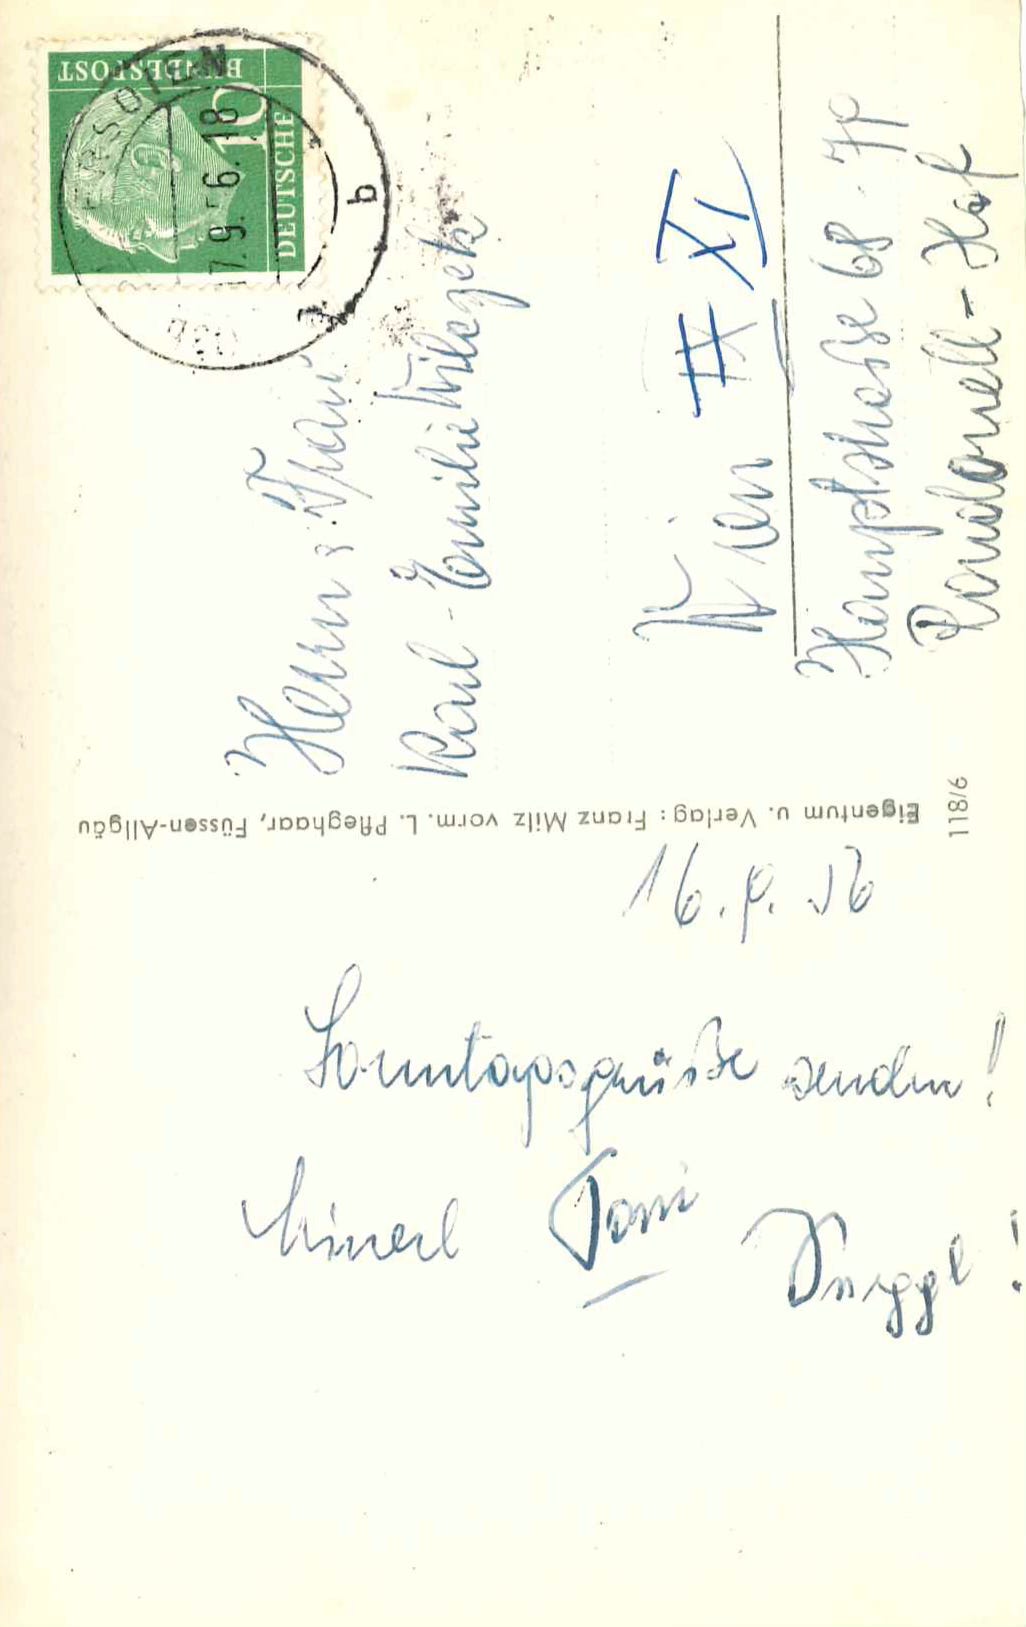 DEUTSCHE
BUNDESPOST
10
17.9.56.18
b
Herrn & Frau
Karl - Emilie
Wien IX XI
Hauptstrasse 68 -
Rondonell - Hof
Eigentum u. Verlag: Franz Milz vorm. L. Pfleghaar, Füssen-Allgäu
118/6
16. 9. 56
Sonntagsgrüße senden!
Minerl Toni